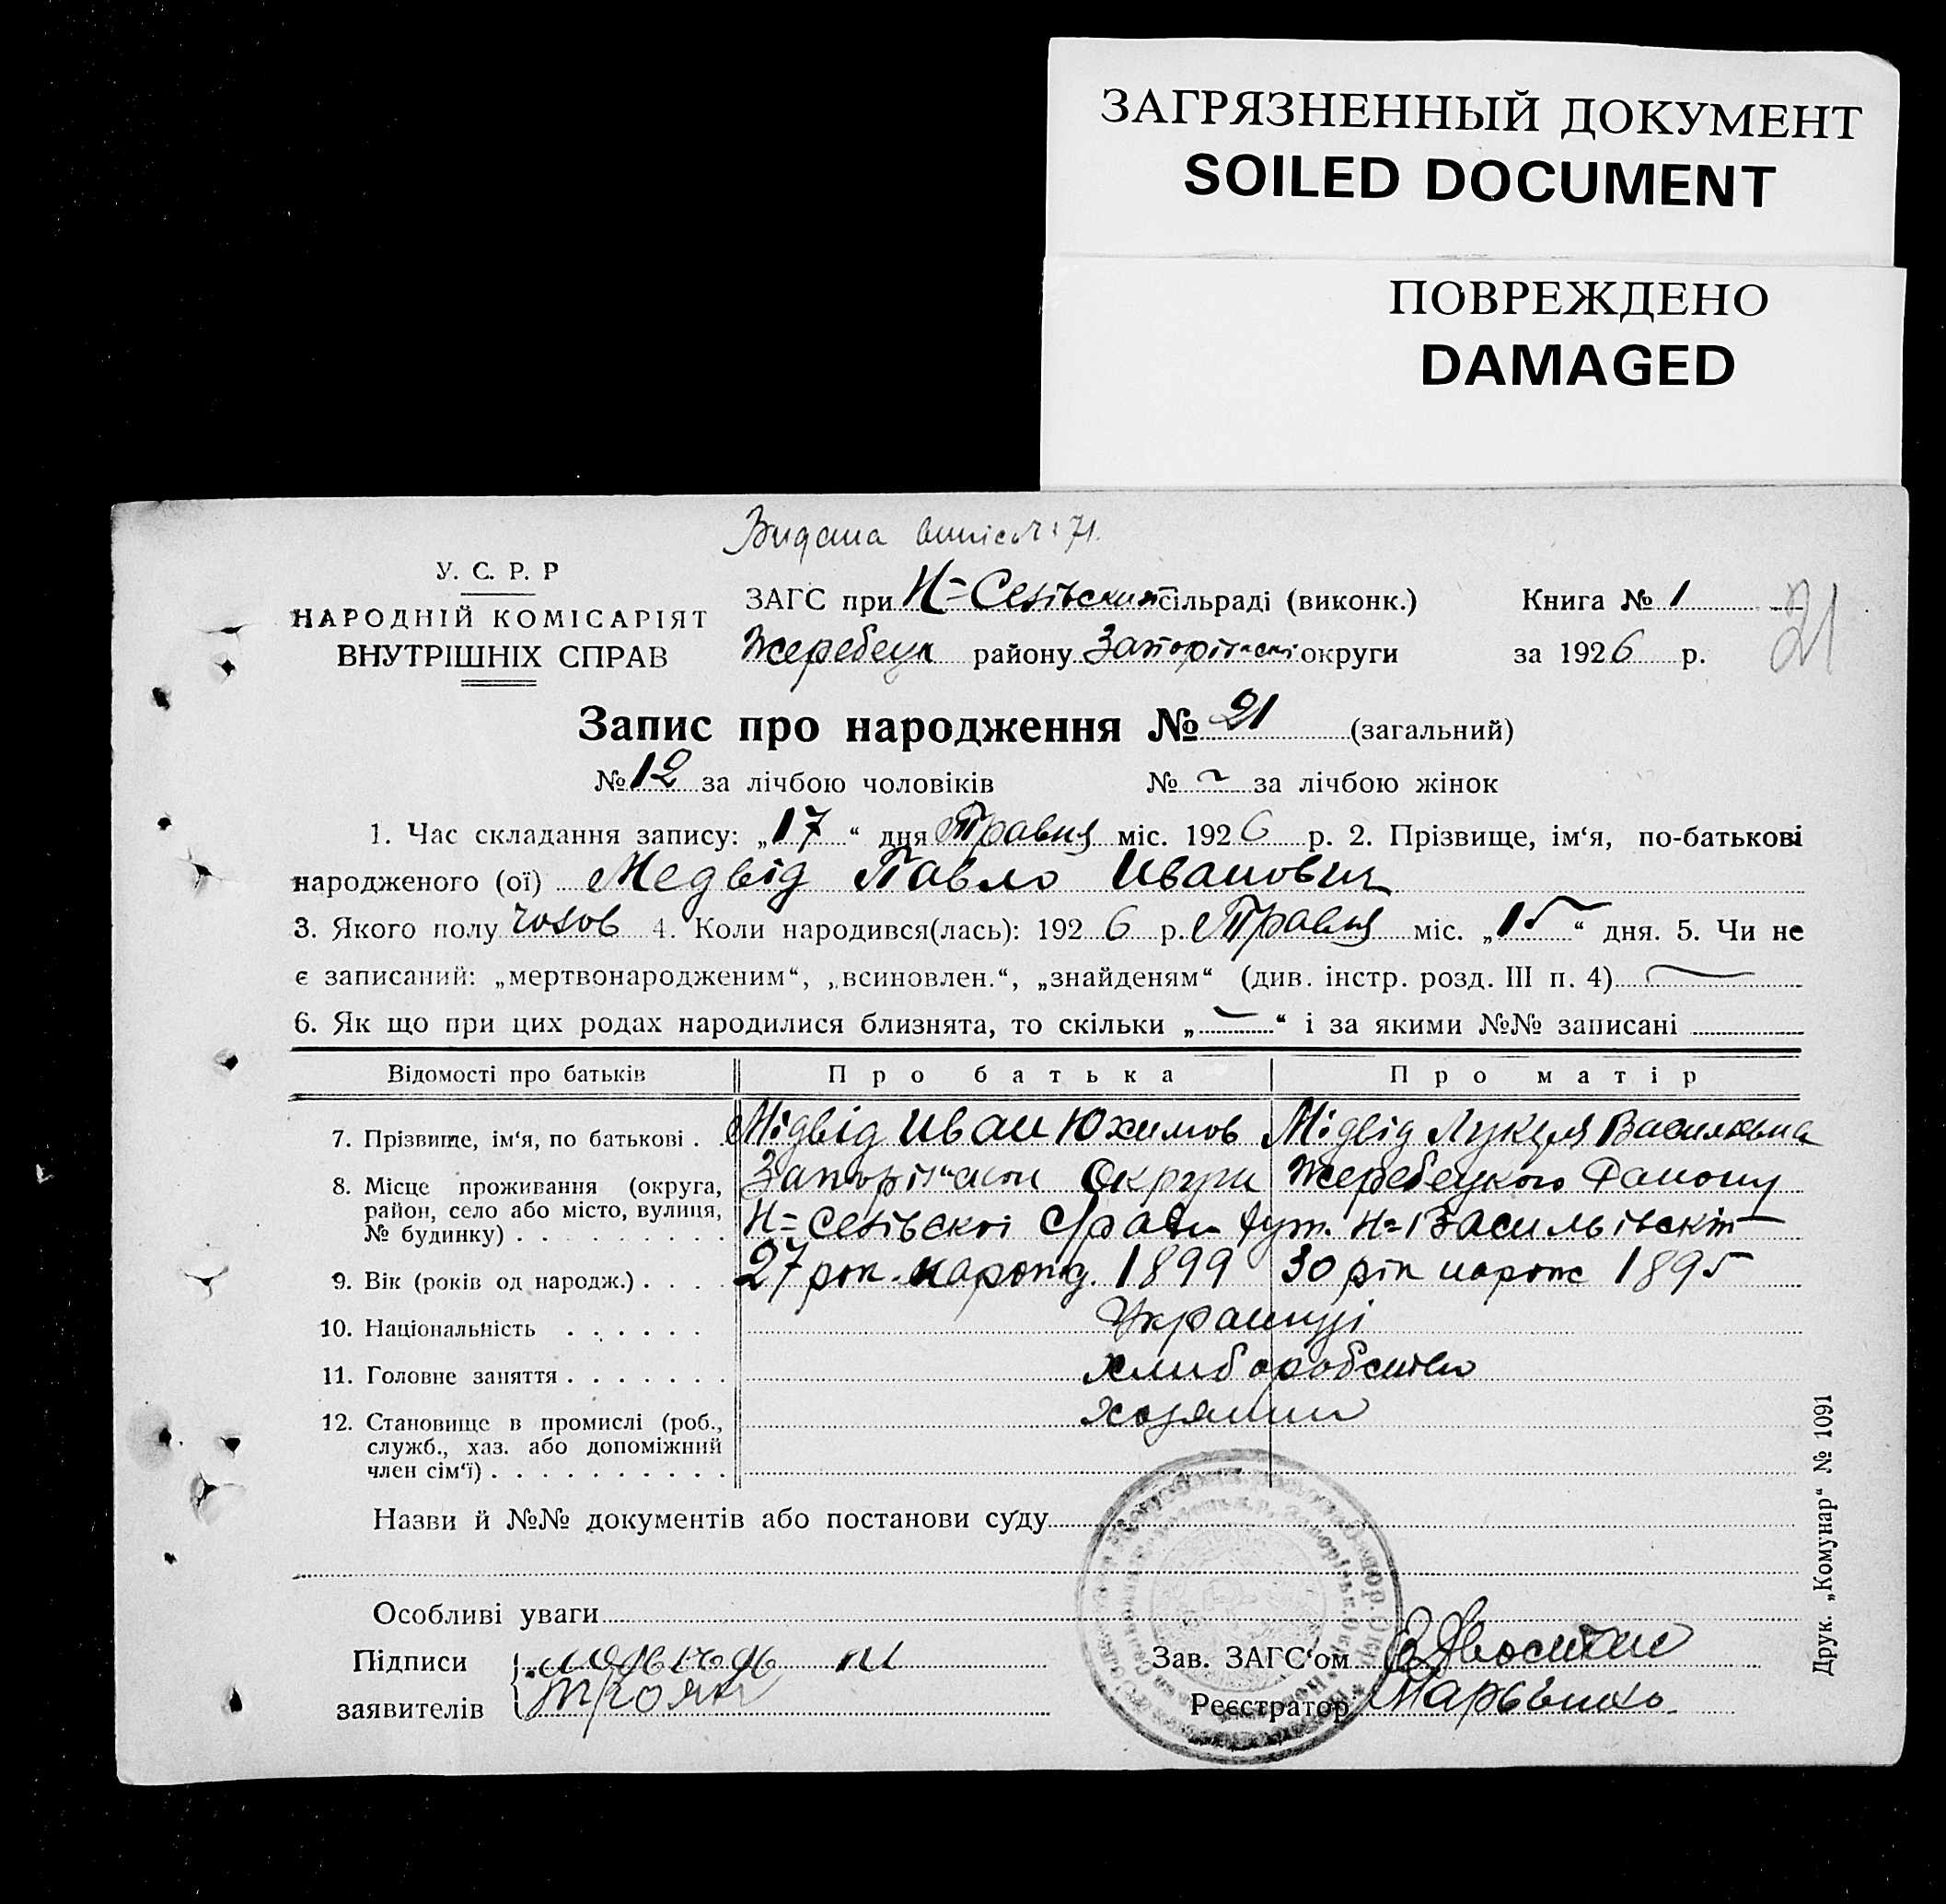 ЗАГРЯЗНЕННЫЙ ДОКУМЕНТ
SOILED DOCUMENT
ПОВРЕЖДЕНО
DAMAGED
Видана
У. С. Р. Р
НАРОДНІЙ КОМІСАРІЯТ
ВНУТРІШНІХ СПРАВ
ЗАГС при Н=Сезівский сільраді (виконк.) Книга № 1
Жеребецк району Запорізські округи за 1926 р.
21
Запис про народження № 21 (загальний)
№ 12 за лічбою чоловіків № ~ за лічбою жінок
1. Час складання запису: „17“ дня Травня міс. 1926 р. 2. Прізвище, ім‘я, по-батькові
народженого (ої) Медвід Павло Иванович
3. Якого полу чолов 4. Коли народився(лась): 1926 р. Травня міс. „15“ дня. 5. Чи не
є записаний: „мертвонародженим“, „всиновлен.“, „знайденям“ (див. інстр. розд. III п. 4) —
6. Як що при цих родах народилися близнята, то скільки „—“ і за якими №№ записані
Відомості про батьків Про батька Про матір
7. Прізвище, ім‘я, по батькові . . Мідвід Иван Юхимов Мідвід Лукція Васильвна
8. Місце проживання (округа, район, село або місто, вулиця, № будинку) . . . . . . . . . Округи Жеребецкого Району
Н=Сезівскоі хут. Н=Васильівскіт
9. Вік (років од народж.) . . . . 27 рок. народ. 1899 30 рік народж 1895
10. Національність . . . . . . Украинці
11. Головне заняття . . . . . . . хлиборобство
12. Становище в промислі (роб., служб., хаз. або допоміжний член сім‘ї) . . . . . . . . . . хозяини
Назви й №№ документів або постанови суду
Особливі уваги
Підписи заявителів
Зав. ЗАГС‘ом
Реєстратор
Друк. „Комунар“ № 1091